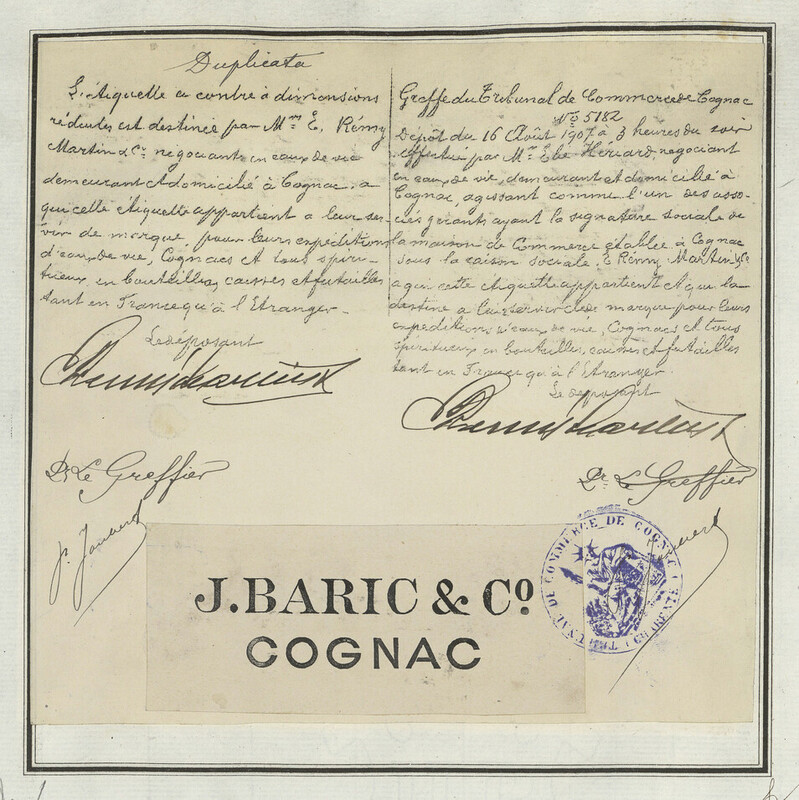 Duplicata
L'étiquette ci contre à dimensions
réduites est destinée par M.rs E. Rémy
Martin & Cie négociants en eaux de vie
demeurant et domicilié à Cognac, a
qui cette étiquette appartient a leur ser-
vir de marque, pour leurs expéditions
d'eaux de vie, Cognacs et tous spiri-
tueux, en bouteilles, caisses et futailles
tant en France qu'à l'Etranger.-
Le déposant
Greffe du Tribunal de Commerce de Cognac
No 5182
Dépôt du 16 Août 1907 à 3 heures du soir
effectué par Mr Elie Hériard, négociant
en eaux de vie, demeurant et domicilié à
Cognac, agissant comme l'un des asso-
ciés gérants ayant la signature sociale de
la maison de Commerce établie à Cognac
sous la raison sociale. E Rémy Martin & Cie
a qui cette étiquette appartient et qui la
destine a leur servir de marque pour leurs
expéditions d'eaux de vie, Cognacs et tous
spiritueux en bouteilles, caisses et futailles
tant en France qu'à l'Etranger.
Le déposant
Pr Le Greffier
Pr Le Greffier
J. BARIC & Co
COGNAC
TRIBUNAL DE COMMERCE DE COGNAC (CHARENTE)